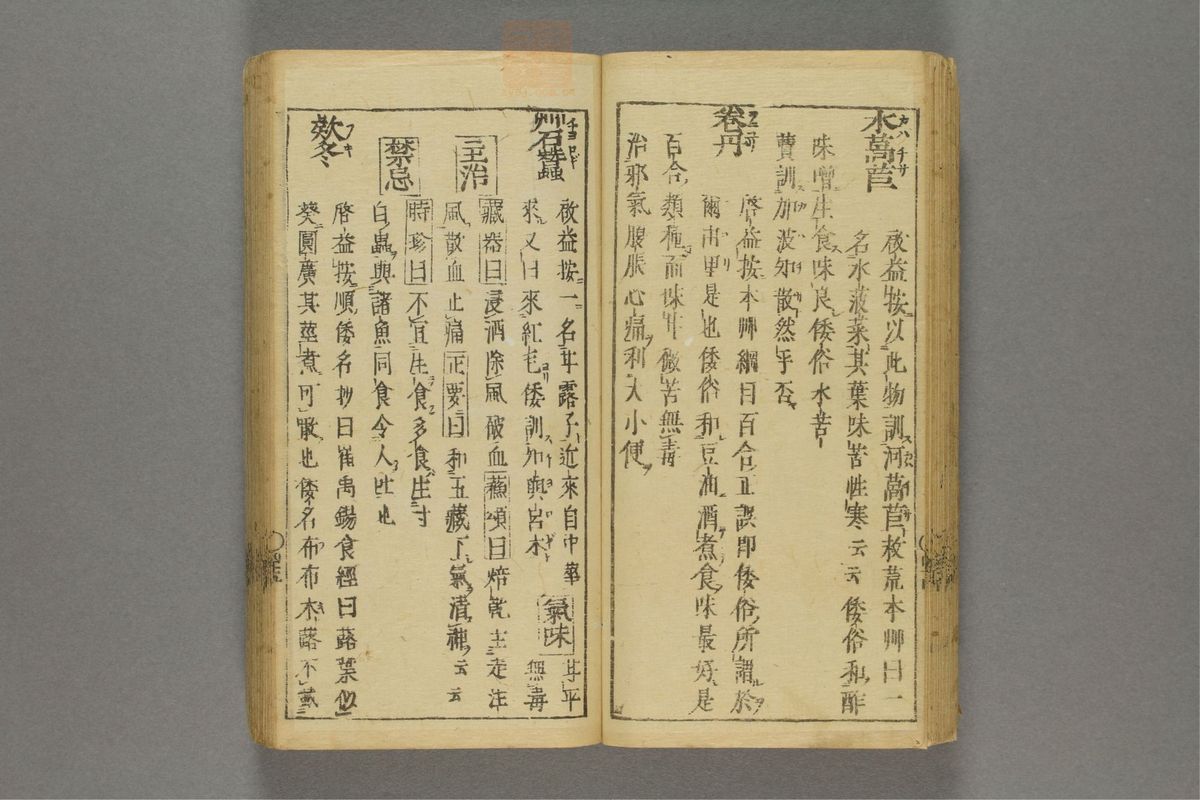 水萵苣
啟益按以此物訓河萵苣救荒本艸曰一
名水菠菜其葉味苦性寒云云倭俗和酢
味噌生食味良倭俗水苦
賣訓加波知散然乎否
卷丹
啓益按本艸綱目百合正誤即倭俗所謂於
爾由里是也倭俗和豆油酒煮食味最好是
百合類種而味甘微苦無毒
治邪氣腹脹心痛利大小便
艸石蠶
啟益按一名甘露子近來自中華
來又曰來紅毛倭訓知與宮木
氣味
甘平
無毒
主治
藏器曰浸酒除風破血蘇頌曰焙乾主走注
風散血止痛正要曰和五藏下氣清神云云
禁忌
時珍曰不宜生食多食生寸
白蟲與諸魚同食令人吐也
欵冬
啓益按順倭名抄曰崔禹錫食經曰蕗葉似
葵圓廣其莖煮可噉也倭名布布木蕗不載